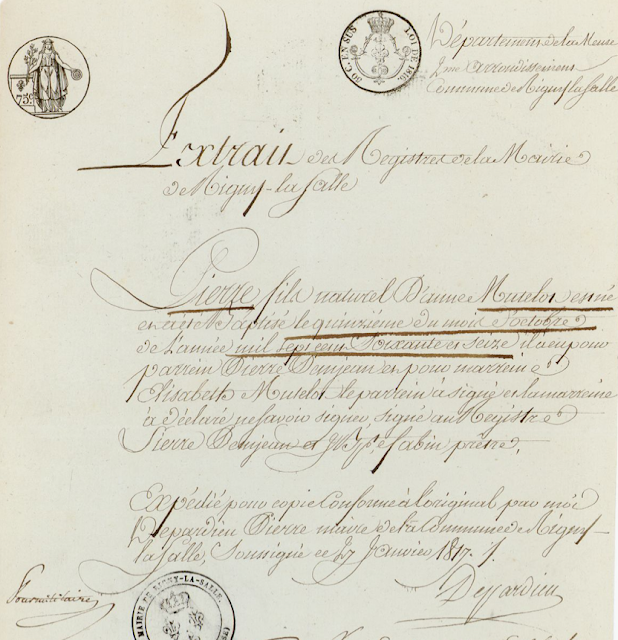 75 C.
50 C. EN SUS
LOI DE 1816.
Département de la Meuse
2me arrondissement
Commune de Rigny la Salle
Extrait des Registres de la Mairie
de Rigny-la Salle
Pierre fils naturel D'anne Mutelot est né
et a été Baptisé le quinzième du mois d'octobre
de L'année mil sept cent Soixante et seize il a eu pour
parrein Pierre Demjean et pour marreine
Elisabeth Mutelot le parrein à signé et la marreine
à déclaré ne savoir signer signé au Registre
Pierre Demjean et Sabin prêtre,
Expédié pour copie Conforme à l'original par moi
Depardieu Pierre maire de la Commune de Rigny-
la Salle, Soussigné ce 27 Janvier 1817.
Depardieu
Pour militaire
MAIRIE DE RIGNY-LA-SALLE